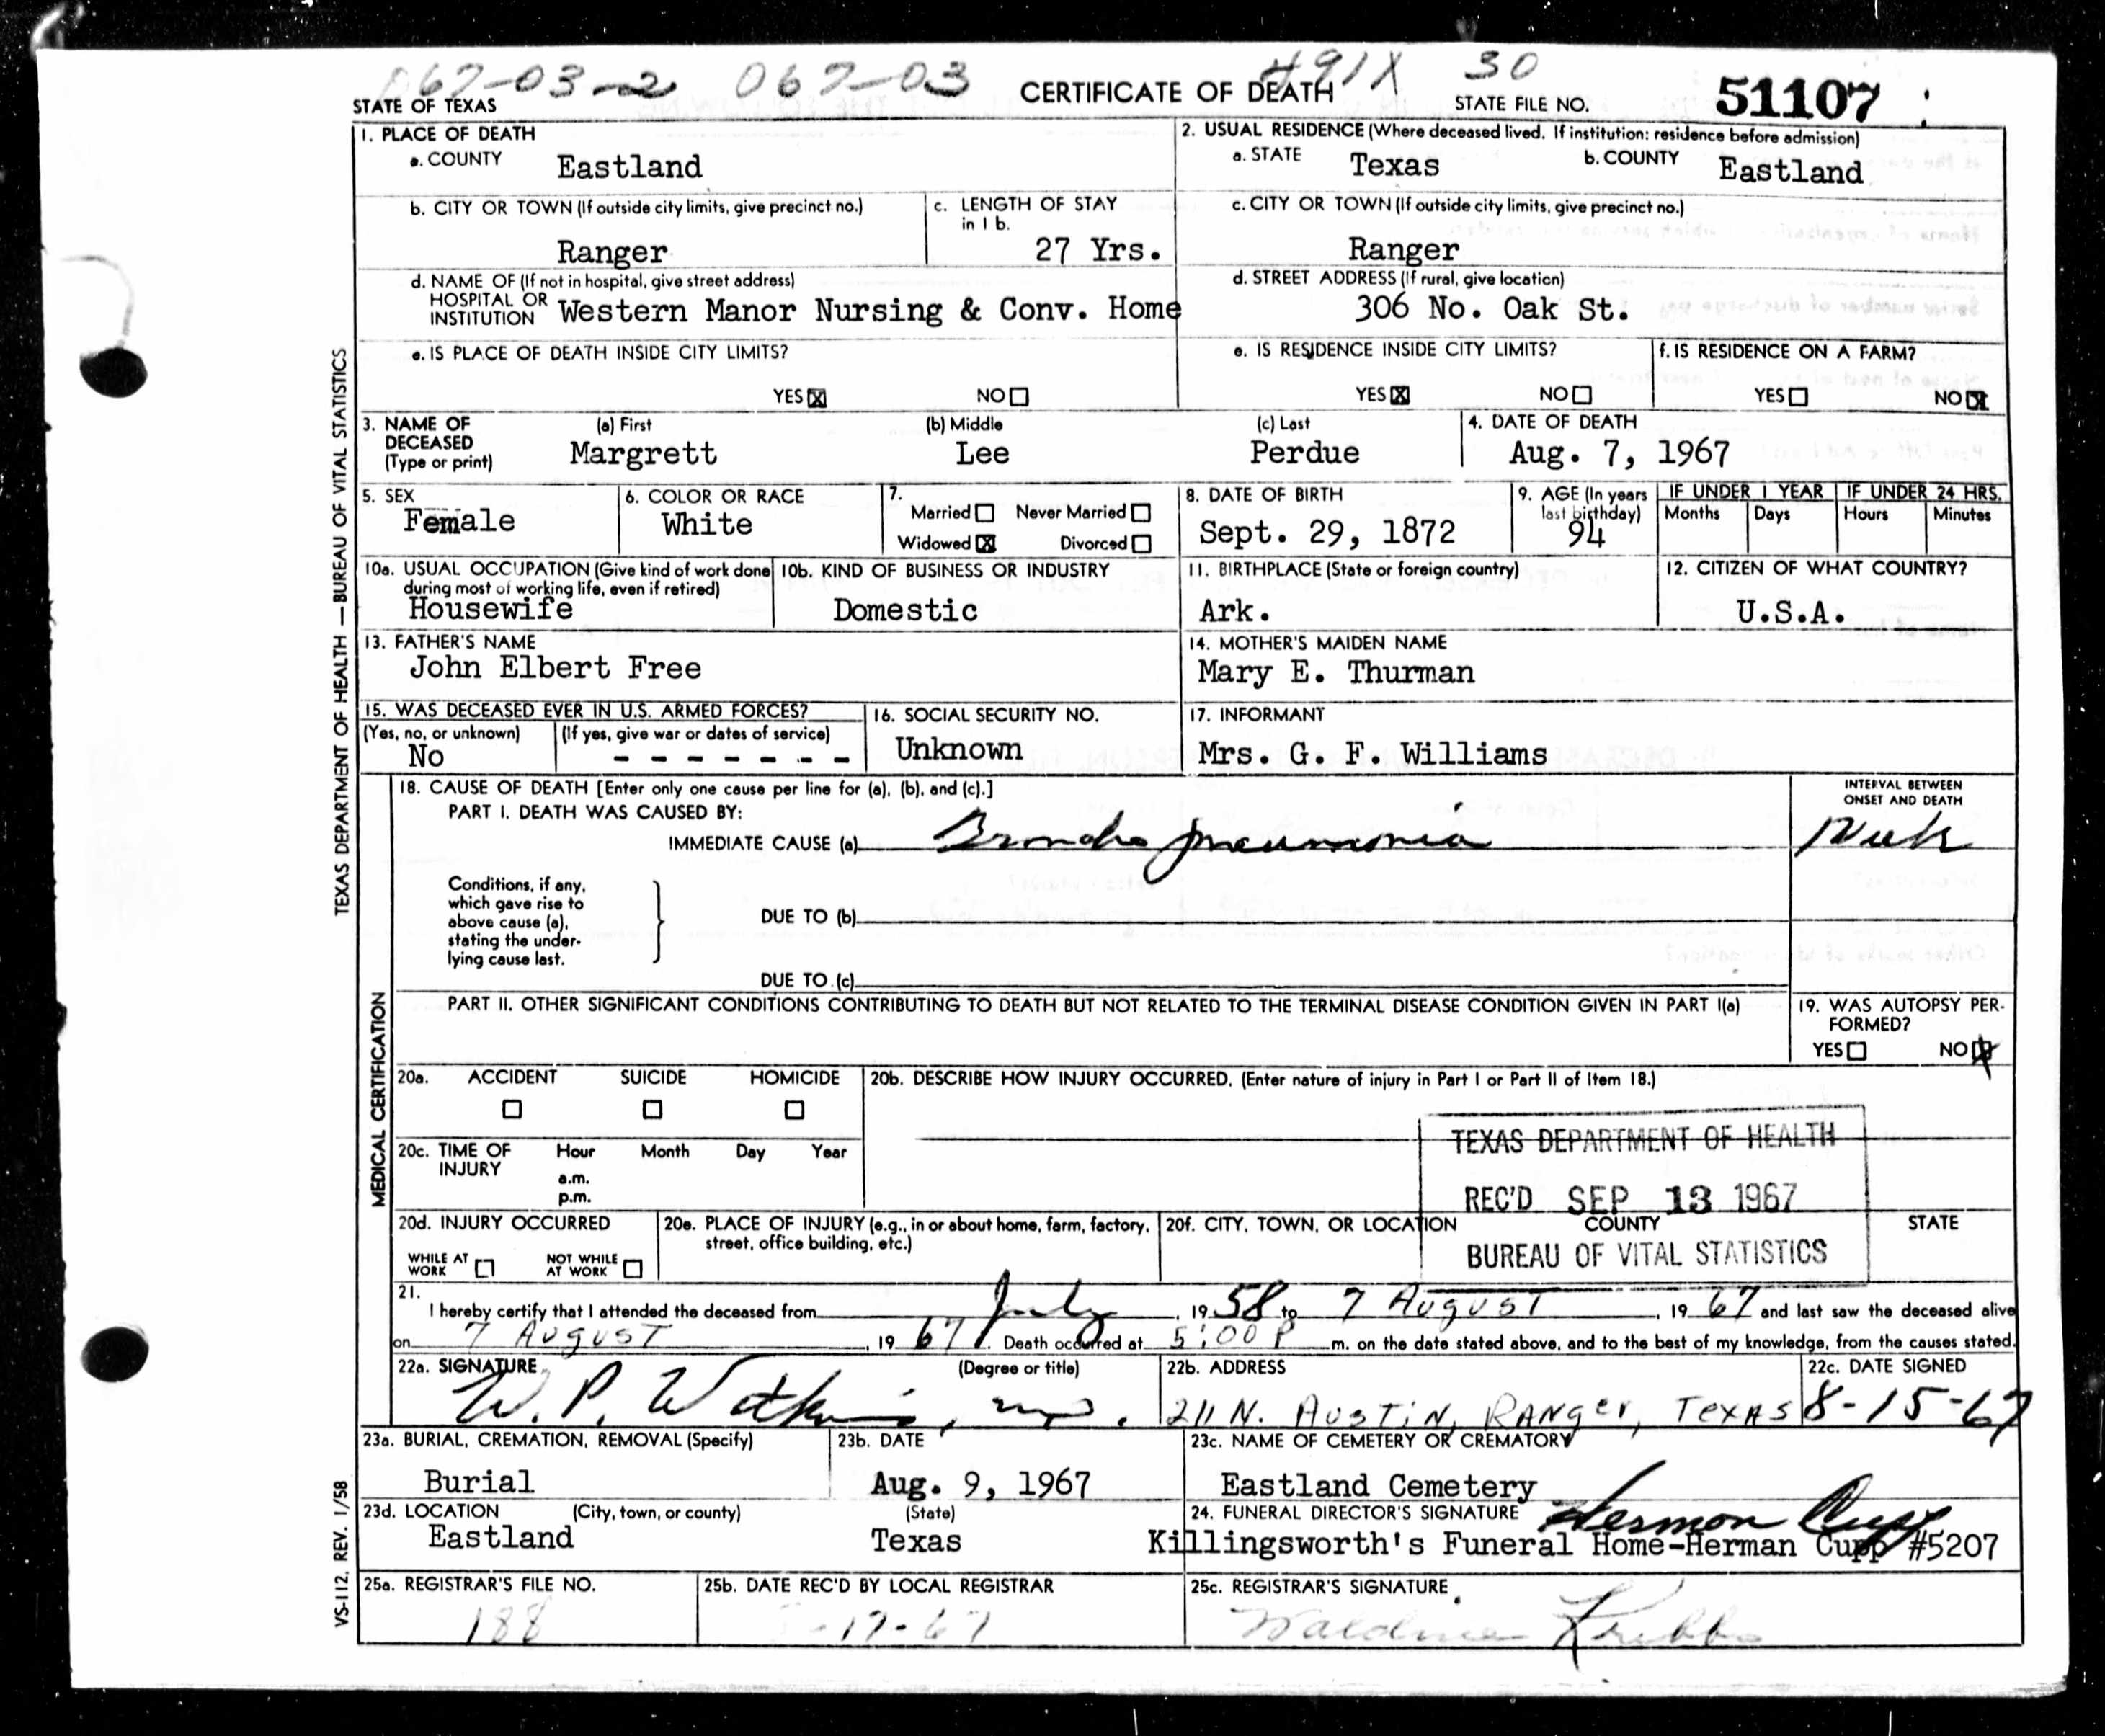 067-03-2 067-03 491X 30
STATE OF TEXAS CERTIFICATE OF DEATH STATE FILE NO. 51107
1. PLACE OF DEATH
a. COUNTY Eastland
2. USUAL RESIDENCE (Where deceased lived. If institution: residence before admission)
a. STATE Texas b. COUNTY Eastland
b. CITY OR TOWN (If outside city limits, give precinct no.) Ranger
c. LENGTH OF STAY in 1 b. 27 Yrs.
c. CITY OR TOWN (If outside city limits, give precinct no.) Ranger
d. NAME OF (If not in hospital, give street address)
HOSPITAL OR INSTITUTION Western Manor Nursing & Conv. Home
d. STREET ADDRESS (If rural, give location)
306 No. Oak St.
e. IS PLACE OF DEATH INSIDE CITY LIMITS?
YES ☒ NO ☐
e. IS RESIDENCE INSIDE CITY LIMITS?
YES ☒ NO ☐
f. IS RESIDENCE ON A FARM?
YES ☐ NO ☒
3. NAME OF DECEASED (Type or print)
(a) First (b) Middle (c) Last
Margrett Lee Perdue
4. DATE OF DEATH
Aug. 7, 1967
5. SEX
Female
6. COLOR OR RACE
White
7.
Married ☐ Never Married ☐
Widowed ☒ Divorced ☐
8. DATE OF BIRTH
Sept. 29, 1872
9. AGE (In years last birthday)
94
IF UNDER 1 YEAR IF UNDER 24 HRS.
Months Days Hours Minutes
10a. USUAL OCCUPATION (Give kind of work done during most of working life, even if retired)
Housewife
10b. KIND OF BUSINESS OR INDUSTRY
Domestic
11. BIRTHPLACE (State or foreign country)
Ark.
12. CITIZEN OF WHAT COUNTRY?
U.S.A.
13. FATHER'S NAME
John Elbert Free
14. MOTHER'S MAIDEN NAME
Mary E. Thurman
15. WAS DECEASED EVER IN U.S. ARMED FORCES?
(Yes, no, or unknown) (If yes, give war or dates of service)
No - - - - - - -
16. SOCIAL SECURITY NO.
Unknown
17. INFORMANT
Mrs. G. F. Williams
18. CAUSE OF DEATH [Enter only one cause per line for (a), (b), and (c).]
INTERVAL BETWEEN ONSET AND DEATH
PART I. DEATH WAS CAUSED BY:
IMMEDIATE CAUSE (a) Broncho pneumonia
Conditions, if any, which gave rise to above cause (a), stating the underlying cause last.
DUE TO (b)
DUE TO (c)
PART II. OTHER SIGNIFICANT CONDITIONS CONTRIBUTING TO DEATH BUT NOT RELATED TO THE TERMINAL DISEASE CONDITION GIVEN IN PART I(a)
19. WAS AUTOPSY PERFORMED?
YES ☐ NO ☒
20a. ACCIDENT SUICIDE HOMICIDE
☐ ☐ ☐
20b. DESCRIBE HOW INJURY OCCURRED. (Enter nature of injury in Part I or Part II of Item 18.)
20c. TIME OF INJURY Hour Month Day Year
a.m.
p.m.
TEXAS DEPARTMENT OF HEALTH
REC'D SEP 13 1967
BUREAU OF VITAL STATISTICS
20d. INJURY OCCURRED
WHILE AT WORK ☐ NOT WHILE AT WORK ☐
20e. PLACE OF INJURY (e.g., in or about home, farm, factory, street, office building, etc.)
20f. CITY, TOWN, OR LOCATION COUNTY STATE
21.
I hereby certify that I attended the deceased from July, 19 58 to 7 August, 19 67 and last saw the deceased alive
on 7 August, 19 67. Death occurred at 5:00 P m. on the date stated above, and to the best of my knowledge, from the causes stated.
22a. SIGNATURE (Degree or title)
W. P. Watkins, M.D.
22b. ADDRESS
211 N. Austin, Ranger, Texas
22c. DATE SIGNED
8-15-67
23a. BURIAL, CREMATION, REMOVAL (Specify)
Burial
23b. DATE
Aug. 9, 1967
23c. NAME OF CEMETERY OR CREMATORY
Eastland Cemetery
23d. LOCATION (City, town, or county) (State)
Eastland Texas
24. FUNERAL DIRECTOR'S SIGNATURE Herman Cupp
Killingsworth's Funeral Home-Herman Cupp #5207
25a. REGISTRAR'S FILE NO.
188
25b. DATE REC'D BY LOCAL REGISTRAR
-17-67
25c. REGISTRAR'S SIGNATURE
TEXAS DEPARTMENT OF HEALTH — BUREAU OF VITAL STATISTICS
MEDICAL CERTIFICATION
VS-112. REV. 1/58